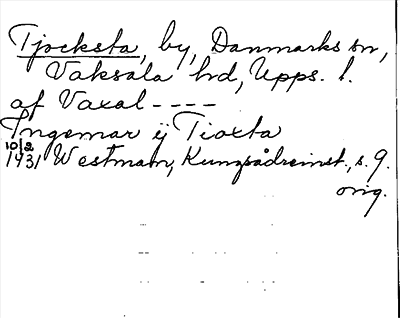 Tjocksta, by, Danmarks sn,
Vaksala hd, Upps. l.
af Vaxal ----
Ingemar ij Tioxta
10/2
1431 Westmam, Kungsådreinst., s. 9.
orig.